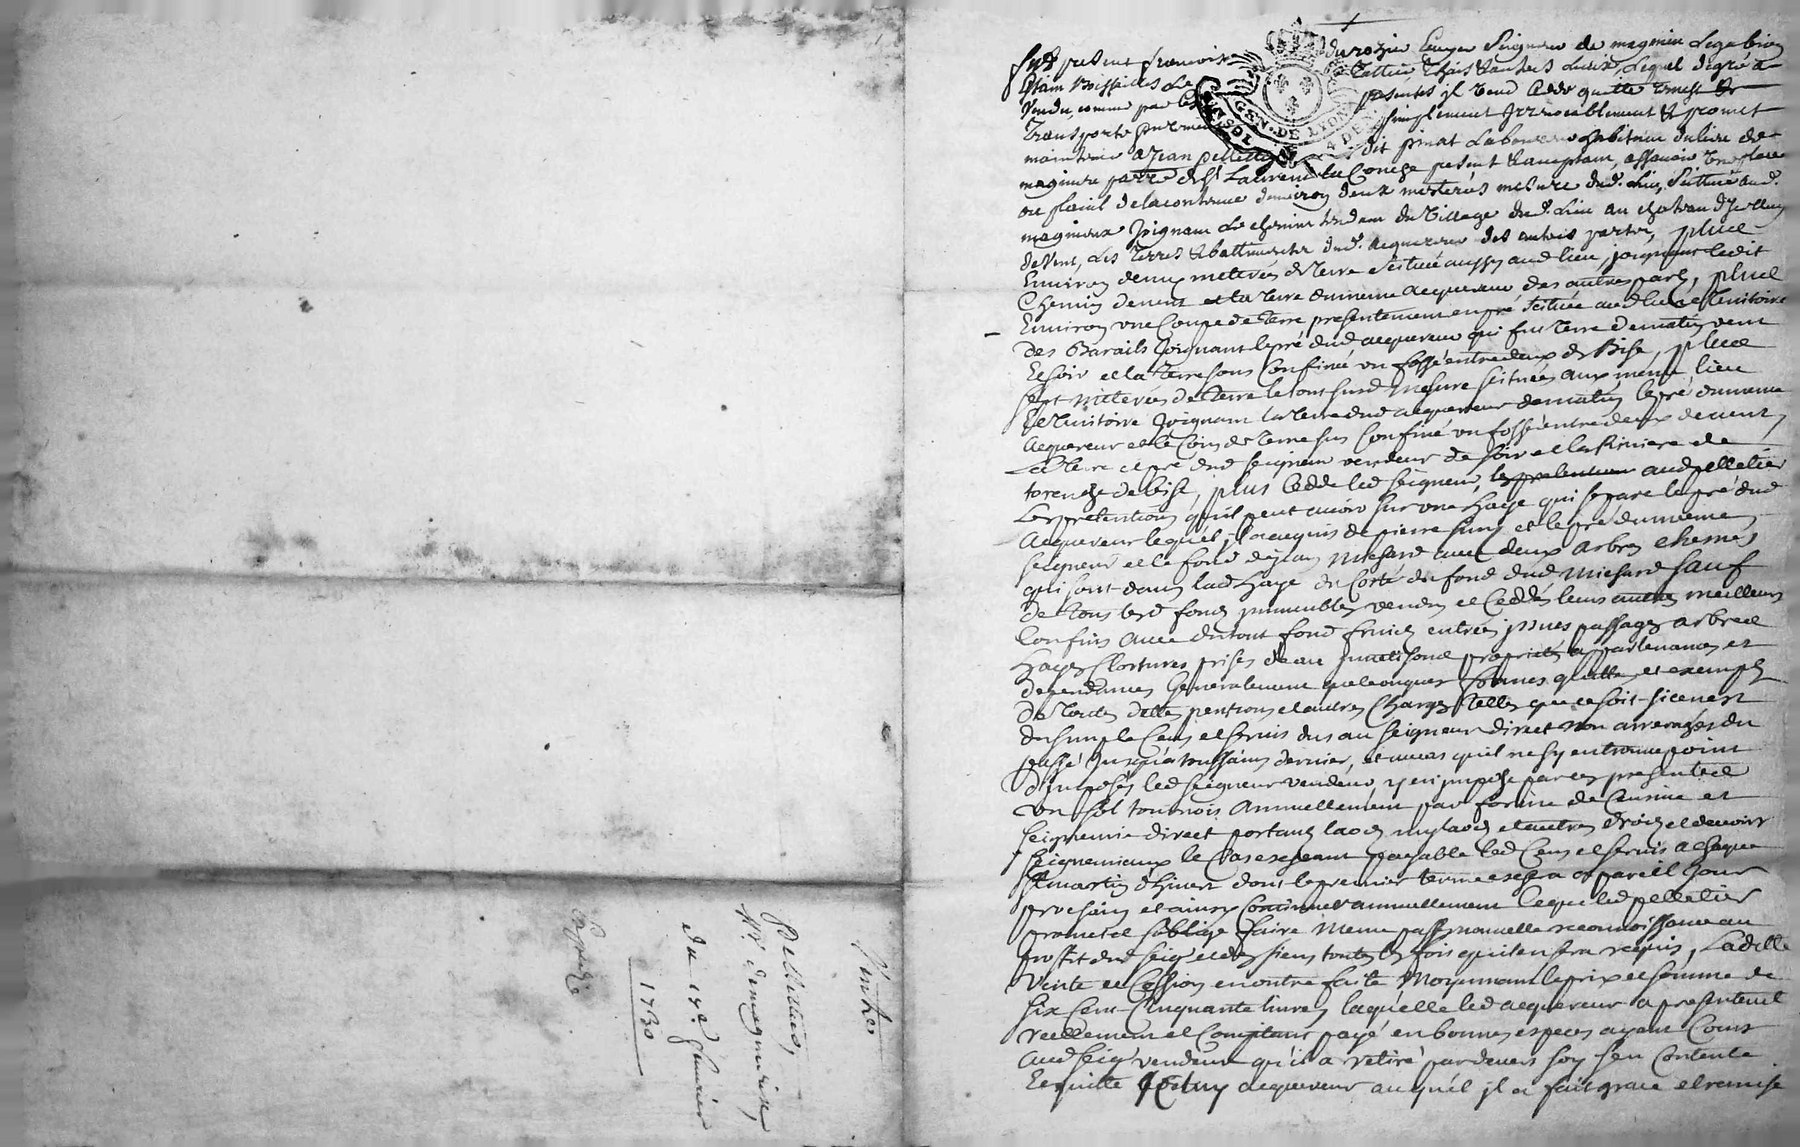 Ventes
Pelletier,
Mr de magnieux
du 17e feurier
1730
Expedié
GEN. DE LYON
fut present françois durozier Escuyer Seigneur de magnieu
vendu, comme par les presentes il vend cede quitte remet &
transporte purement simplement Irrevocablement & promet
maintenir a Jean pelletier dit pinat Laboureur habitant du lieu de
magnieu parre de St Laurent la Conche present & acceptant, assauoir une terre
ou plassal de la contenue denuiron deux meterées mesure dud. lieu, scittuée aud.
magnieux Joignant Le chemin tendant du village dud. lieu au chateau
de vent, Les terres & battiments dud. acquereur des autres parts, plus
Enuiron deux meterées de terre scituée aussy aud lieu, joignant ledit
Chemin de vent et la terre du mesme acquereur des autres parts, plus
Enuiron une Coupe de terre presentement en pré scituée aud lieu & territoire
des Barails Joignant le pré dud acquereur qui fut terre de matin vent
et soir et la terre sous Confinée un fossé entre deux de Bise, plus
sept meterées de terre le tout susd mesure scituées aux meme lieu
& territoire Joignant la terre dud acquereur de matin le pré du meme
acquereur et le Coin de terre sus Confiné un fossé entre deux de vent,
La terre et pré dud seigneur vendeur de soir et la Riuiere de
toranche de bise, plus cedde led seigneur, les pretentions aud pelletier
Les pretentions qu'il peut auoir sur une haye qui separe le pré dud
acquereur lequel, il a acquis de pierre et le pré du mesme
seigneur et le fond de Michard auec deux arbres chesnes,
qui sont dans lad haye du Costé du fond dud Michard sauf
de tous lesd fonds immeubles vendus et Ceddés leurs autres meilleurs
Confins auec du tout fond fruicts entrées issues passages arbres
hayes Clostures prises deau proprietés appartenances et
dependances generalement quelconques francs quitte et exempts
de toutes dettes pensions et autres Charges telles que ce soit si ce nest
du simple Cens et seruis dus au seigneur direct non arreragés du
passé Jusqu'a toussaints dernier, et en cas qu'il ne sy en trouue point
d'imposés led seigneur vendeur y en impose par ces presentes
un sol tournois annuellement par forme de Censiue et
seigneurie direct portant laods mylaods et autres droits et deuoirs
seigneuriaux le Cas escheant payable led Cens et seruis a chaque
St martin d'hiuert dont le premier terme eschera a pareil Jour
prochain et ainsy Continuer annuellement lequel led pelletier
promet et soblige faire meme passer nouuelle reconnoissance au
proffit dud seigr et des siens toutes les fois qu'il en sera requis, Laditte
Vente et Cession en outre faite Moyennant le prix et somme de
six Cent Cinquante liures laquelle led acquereur a presentement
reellement et Comptant payé en bonnes especes ayant Cours
aud seigr vendeur qu'il a retiré pardeuers soy s'en contente
Et quitte led acquereur auquel il a fait grace et remise